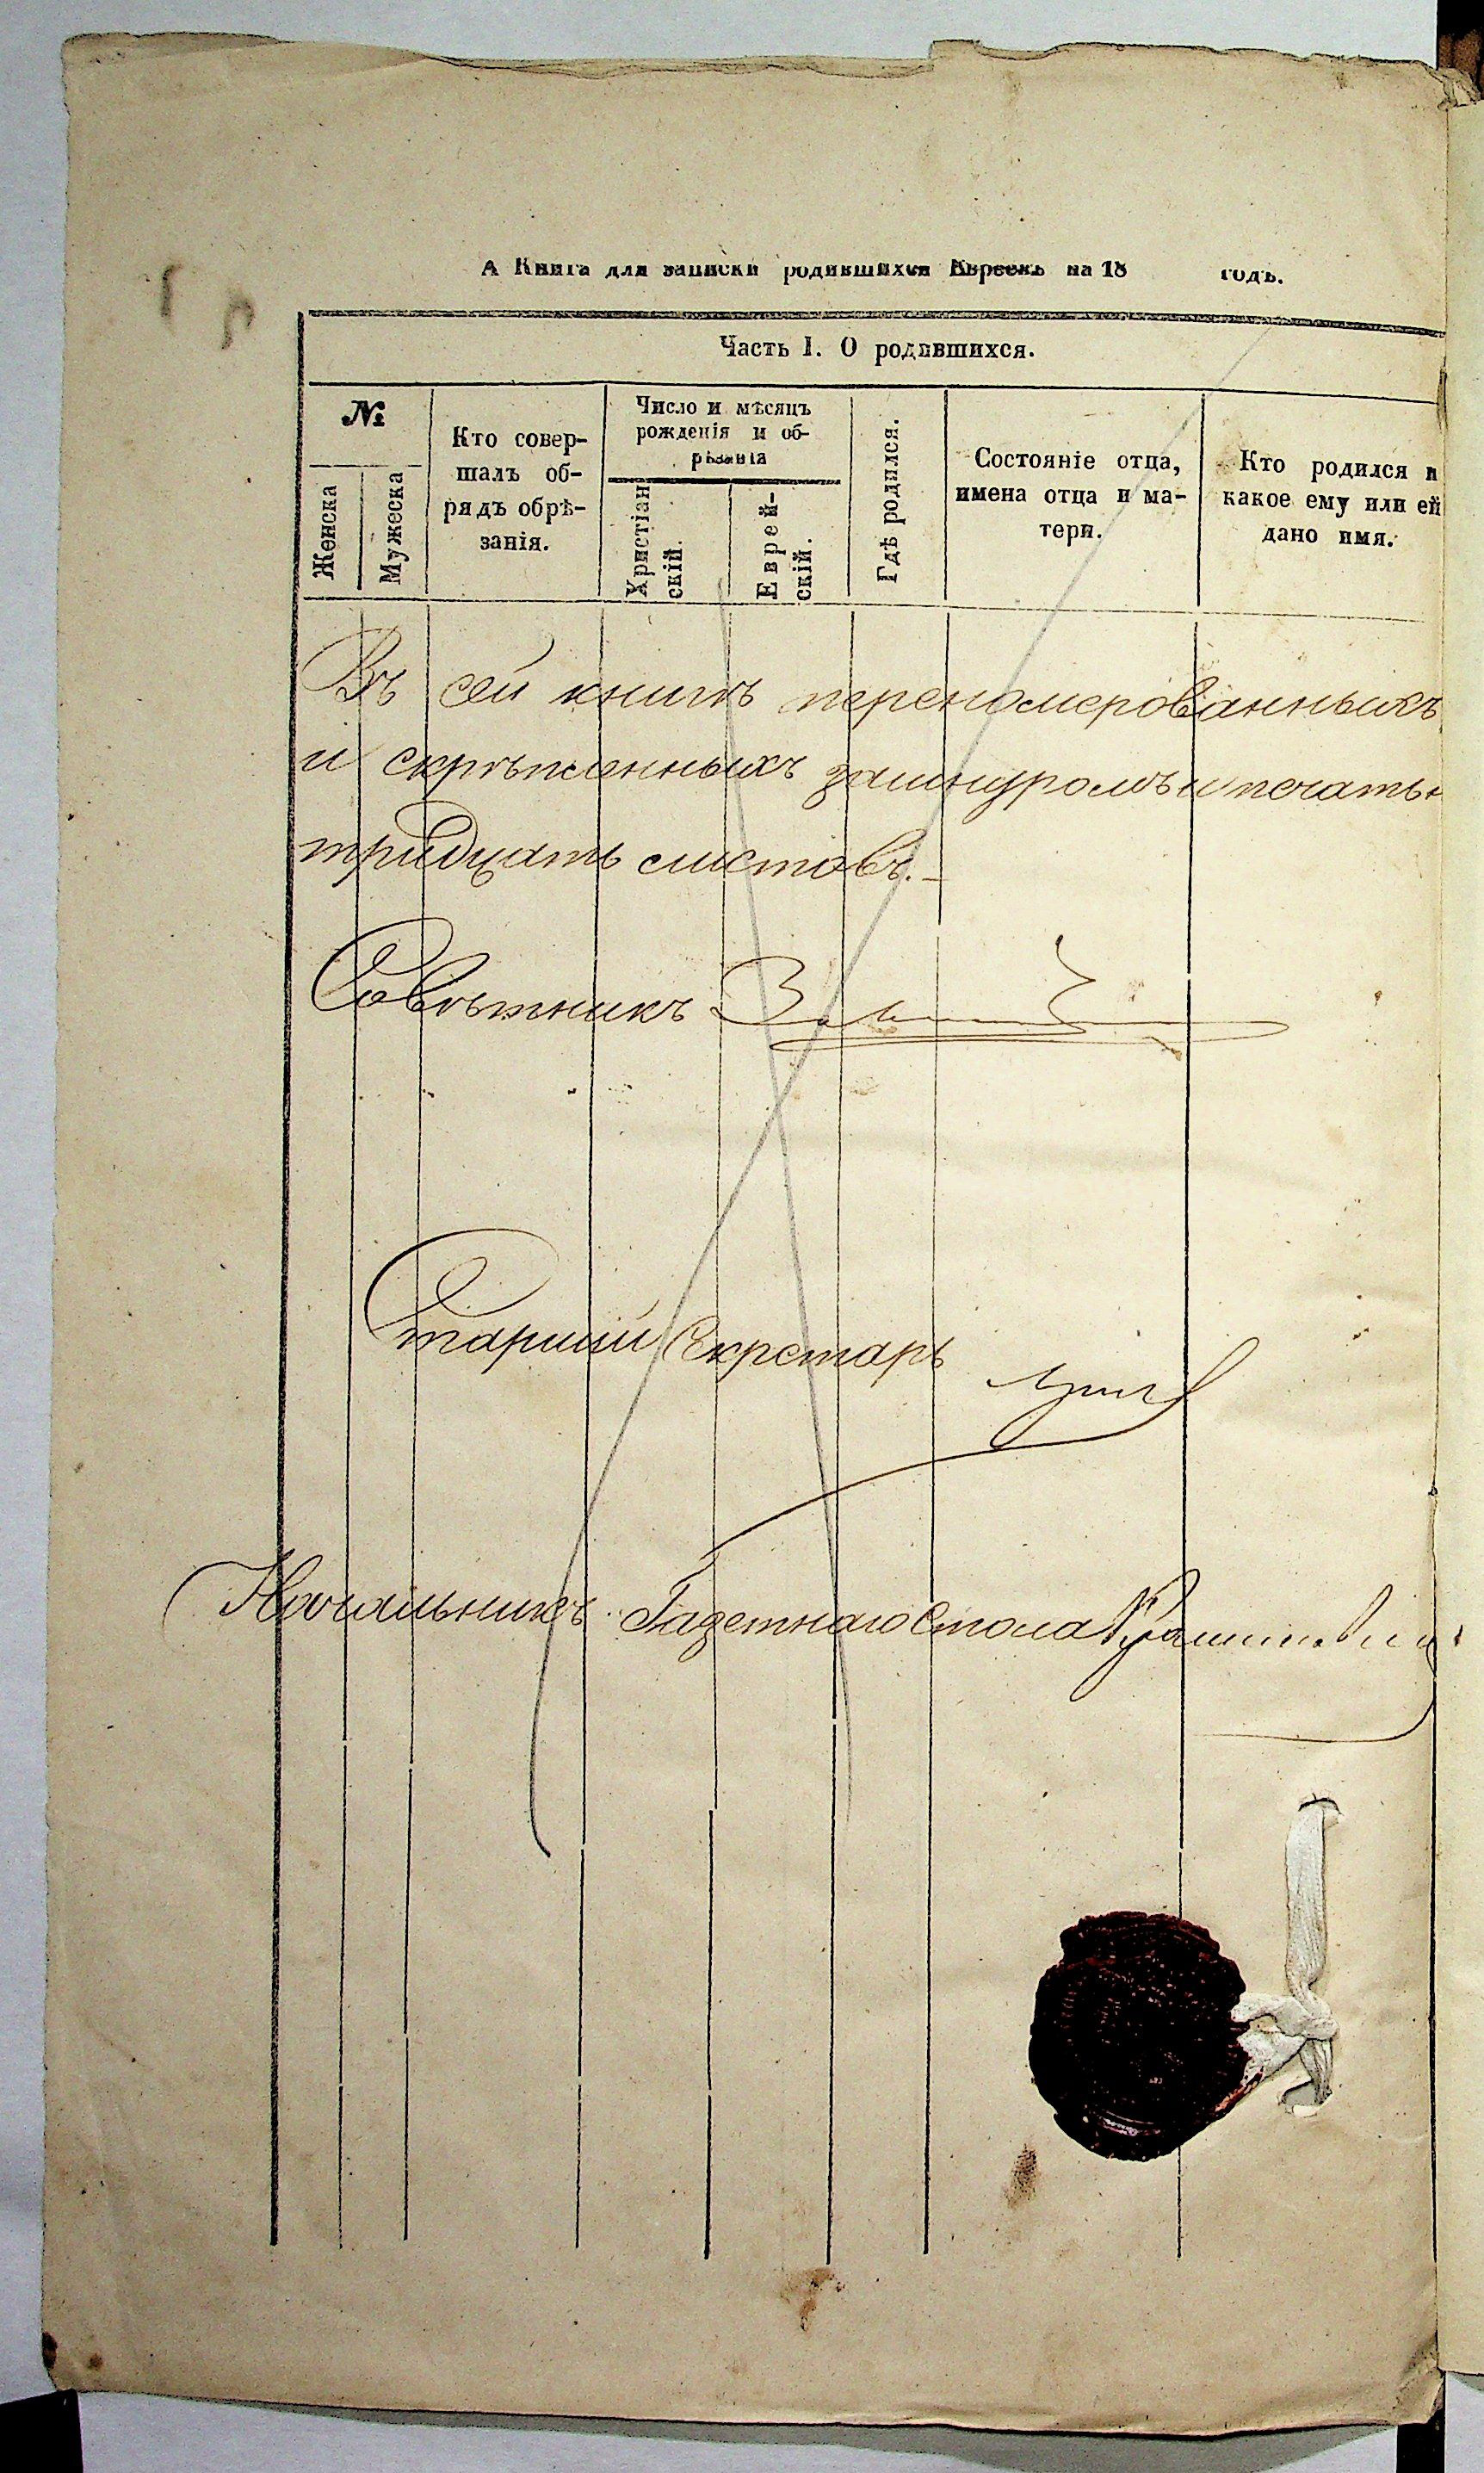 А Книга для записки родившихся Евреевъ на 18 годъ.
Часть I. О родившихся.
№
Женска
Мужеска
Кто совер-
шалъ об-
рядъ обрѣ-
занія.
Число и мѣсяцъ
рожденія и об-
рѣзанія
Христіан
скій.
Еврей-
скій.
Гдѣ родился.
Состояніе отца,
имена отца и ма-
тери.
Кто родился и
какое ему или ей
дано имя.
Въ сей книгѣ переномерованныхъ
и скрѣпленныхъ зашнуромъ и печатью
тридцать листовъ.
Совѣтникъ
Старшій Секретарь
Начальникъ Газетнаго Стола